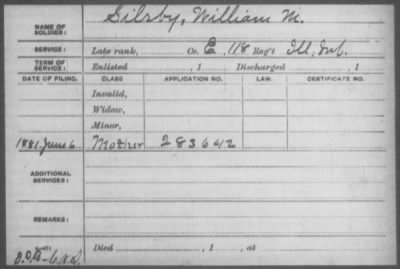 NAME OF SOLDIER: Silsby, William M.
SERVICE: Late rank, Co. E, 118 Reg't Ill. Inf.
TERM OF SERVICE: Enlisted , 1 Discharged , 1
DATE OF FILING. CLASS APPLICATION NO. LAW. CERTIFICATE NO.
Invalid,
Widow,
Minor,
1881, June 6 Mother 283642
ADDITIONAL SERVICES:
REMARKS:
Died , 1 , at